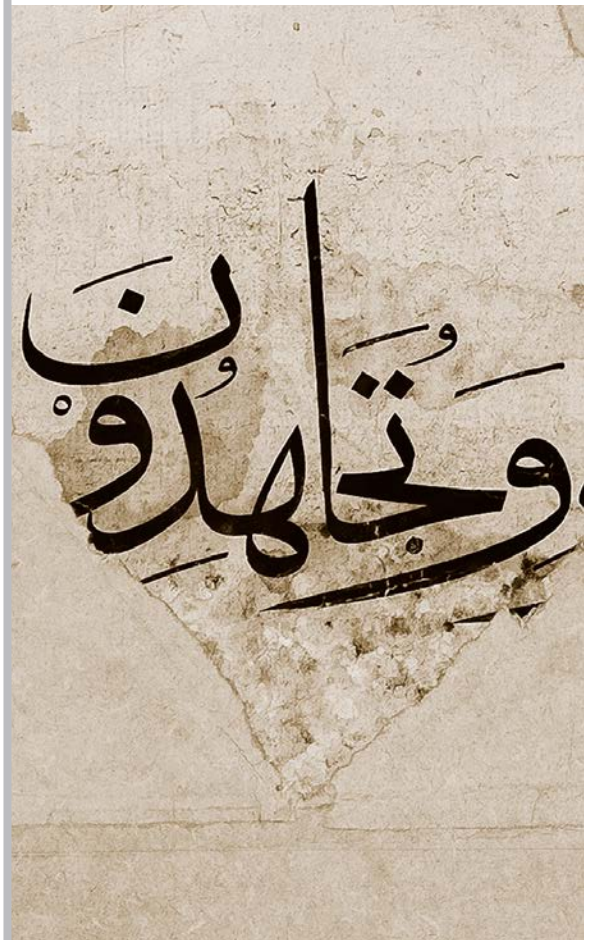 وَتُجَاهِدُونَ